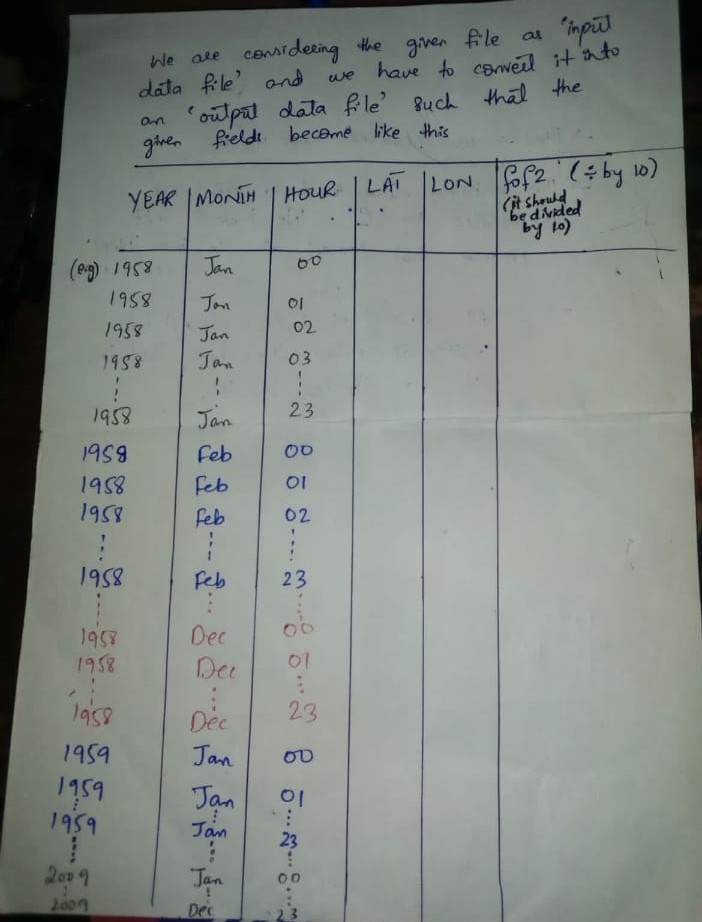 We are considering the given file as 'input
data file' and we have to convert it into
an 'output data file' such that the
given fields become like this
YEAR MONTH HOUR LAT LON fof2 (÷ by 10)
(it should
be divided
by 10)
(e.g) 1958 Jan 00
1958 Jan 01
1958 Jan 02
1958 Jan 03
1958 Jan 23
1958 Feb 00
1958 Feb 01
1958 Feb 02
1958 Feb 23
1958 Dec 00
1958 Dec 01
1958 Dec 23
1959 Jan 00
1959 Jan 01
1959 Jan 23
2009 Jan 00
2009 Dec 23